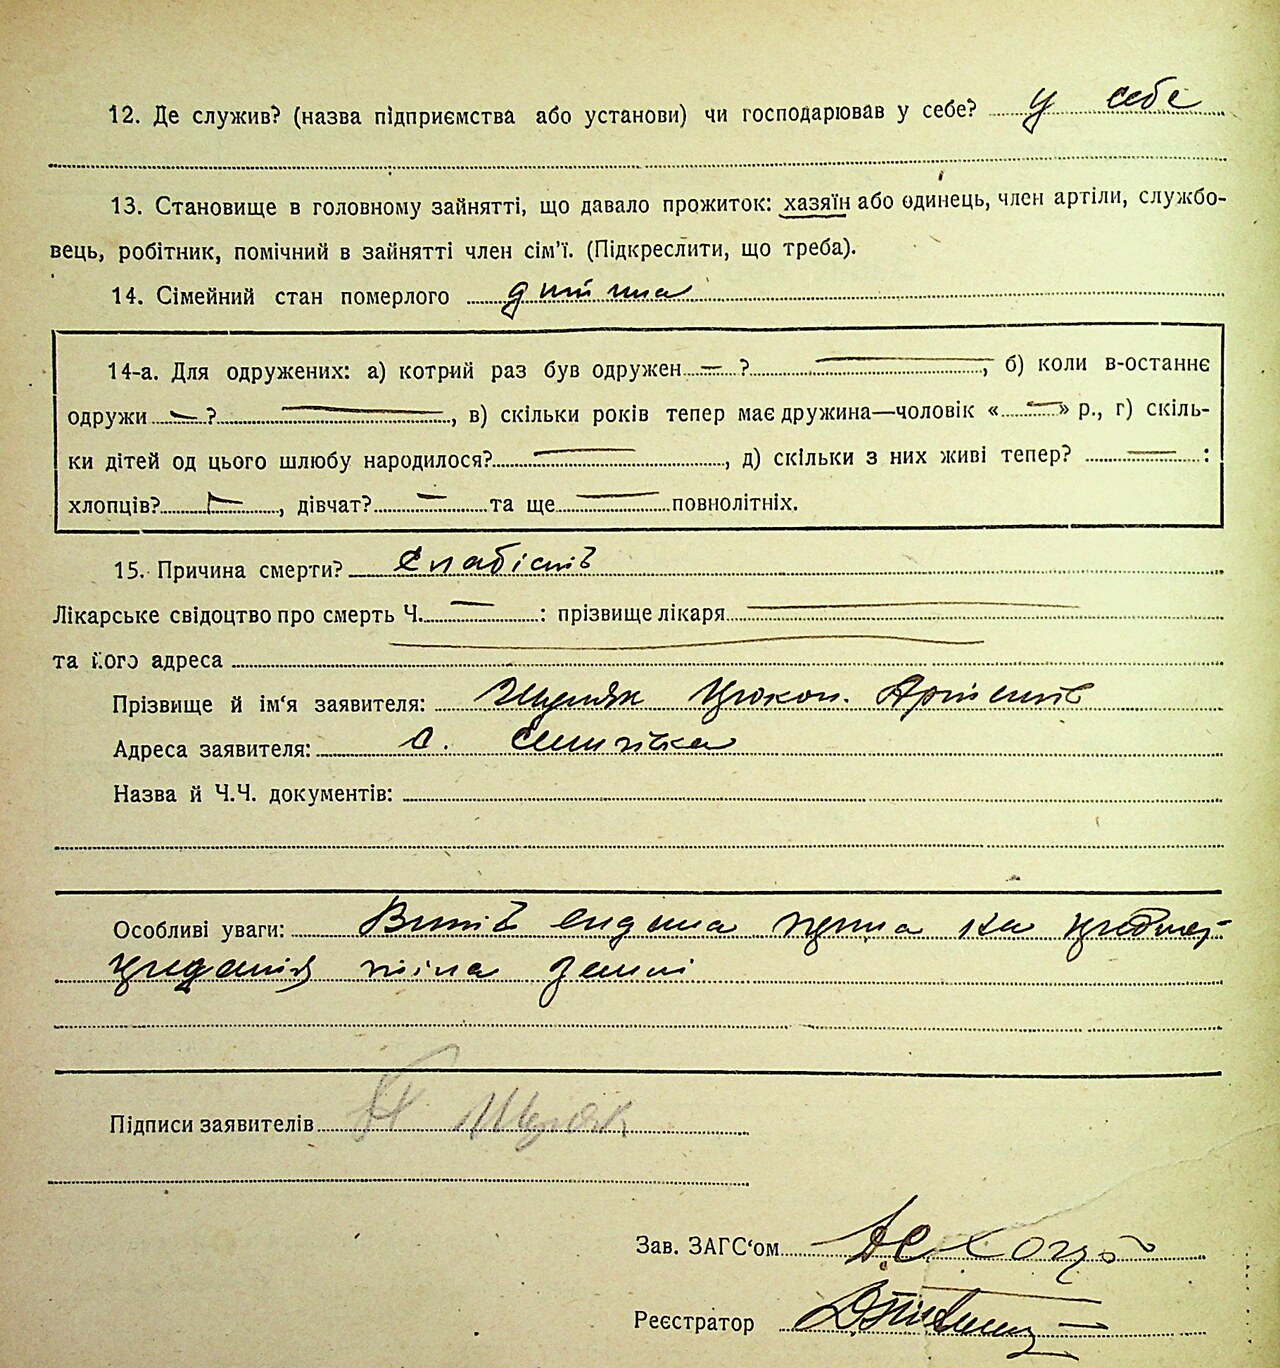 12. Де служив? (назва підприємства або установи) чи господарював у себе? у себе
13. Становище в головному зайнятті, що давало прожиток: хазяїн або одинець, член артіли, службо-
вець, робітник, помічний в зайнятті член сім'ї. (Підкреслити, що треба).
14. Сімейний стан померлого дитина
14-а. Для одружених: а) котрий раз був одружен — ? —, б) коли в-останнє
одружи — ? —, в) скільки років тепер має дружина—чоловік « — » р., г) скіль-
ки дітей од цього шлюбу народилося? —, д) скільки з них живі тепер? — :
хлопців? —, дівчат? — та ще — повнолітніх.
15. Причина смерти? Слабість
Лікарське свідоцтво про смерть Ч. — : прізвище лікаря —
та його адреса —
Прізвище й ім'я заявителя: Прокоп.
Адреса заявителя: с.
Назва й Ч.Ч. документів:
Особливі уваги: Витяг видана на предмет
придания тіла землі
Підписи заявителів
Зав. ЗАГС'ом
Реєстратор